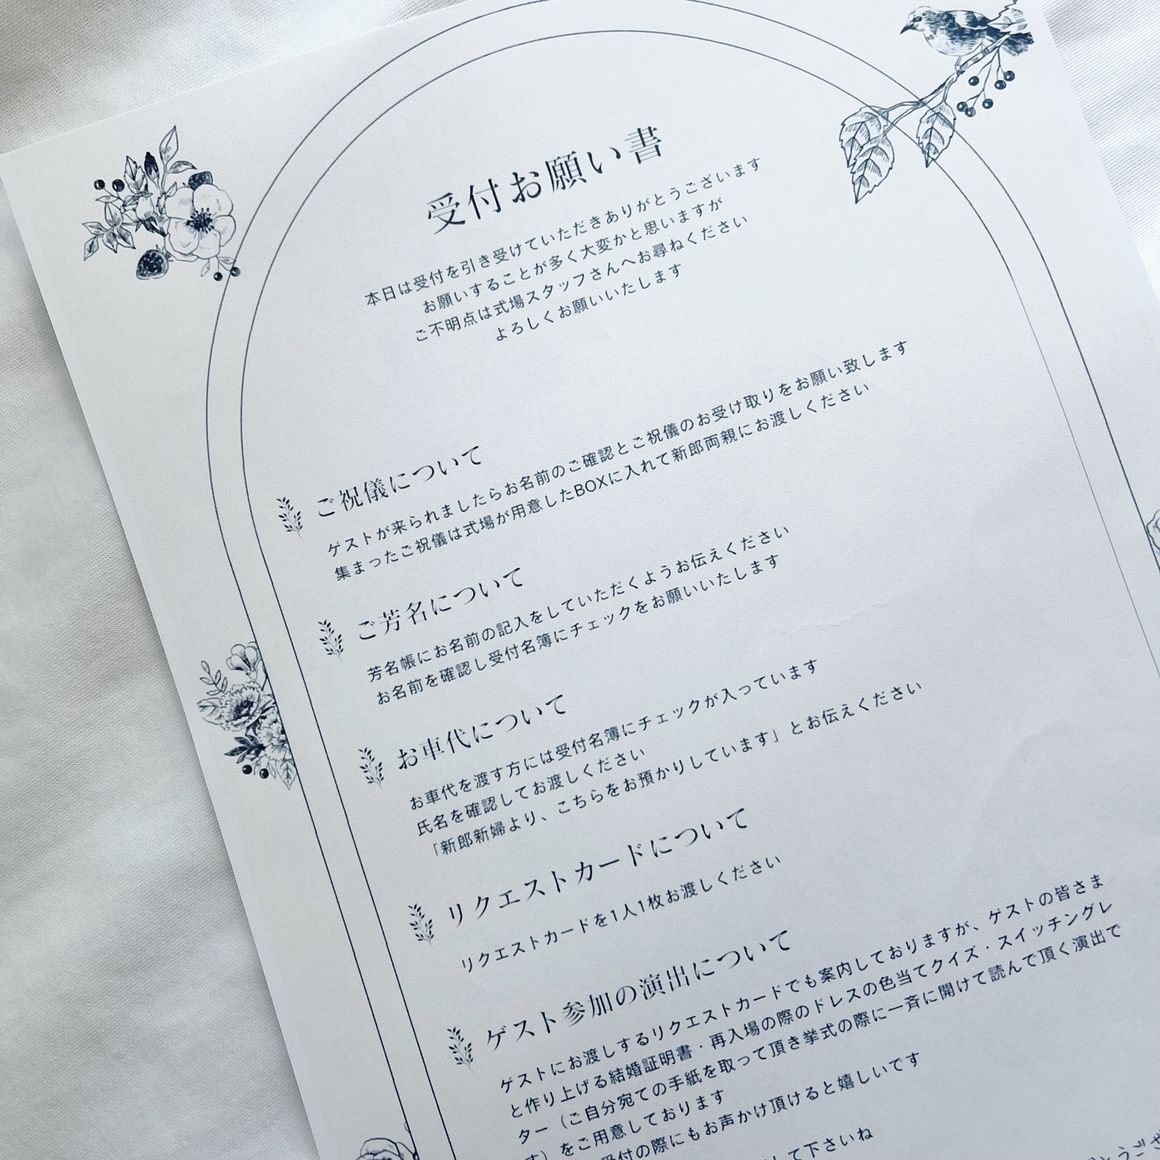 受付お願い書
本日は受付を引き受けていただきありがとうございます
お願いすることが多く大変かと思いますが
ご不明点は式場スタッフさんへお尋ねください
よろしくお願いいたします
ご祝儀について
ゲストが来られましたらお名前のご確認とご祝儀のお受け取りをお願い致します
集まったご祝儀は式場が用意したBOXに入れて新郎両親にお渡しください
ご芳名について
芳名帳にお名前の記入をしていただくようお伝えください
お名前を確認し受付名簿にチェックをお願いいたします
お車代について
お車代を渡す方には受付名簿にチェックが入っています
氏名を確認してお渡しください
「新郎新婦より、こちらをお預かりしています」とお伝えください
リクエストカードについて
リクエストカードを1人1枚お渡しください
ゲスト参加の演出について
ゲストにお渡しするリクエストカードでも案内しておりますが、ゲストの皆さま
と作り上げる結婚証明書・再入場の際のドレスの色当てクイズ・スイッチングレ
ター（ご自分宛ての手紙を取って頂き挙式の際に一斉に開けて読んで頂く演出で
す）をご用意しております
受付の際にもお声かけ頂けると嬉しいです
して下さいね